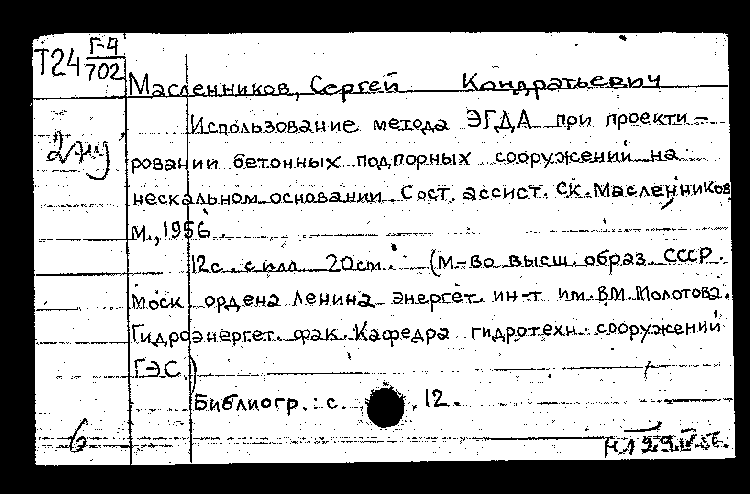 Т24 Г-4
702
Масленников, Сергей Кондратьевич
Использование метода ЭГДА при проекти-
ровании бетонных подпорных сооружений на
нескальном основании. Сост. ассист. С.К. Масленников
М., 1956.
12с. с илл. 20см. (М-во высш. образ. СССР.
Моск. ордена Ленина энергет. ин-т им. В.М. Молотова.
Гидроэнергет. фак. Кафедра гидротехн. сооружений
ГЭС.)
Библиогр.: с. 12.
6